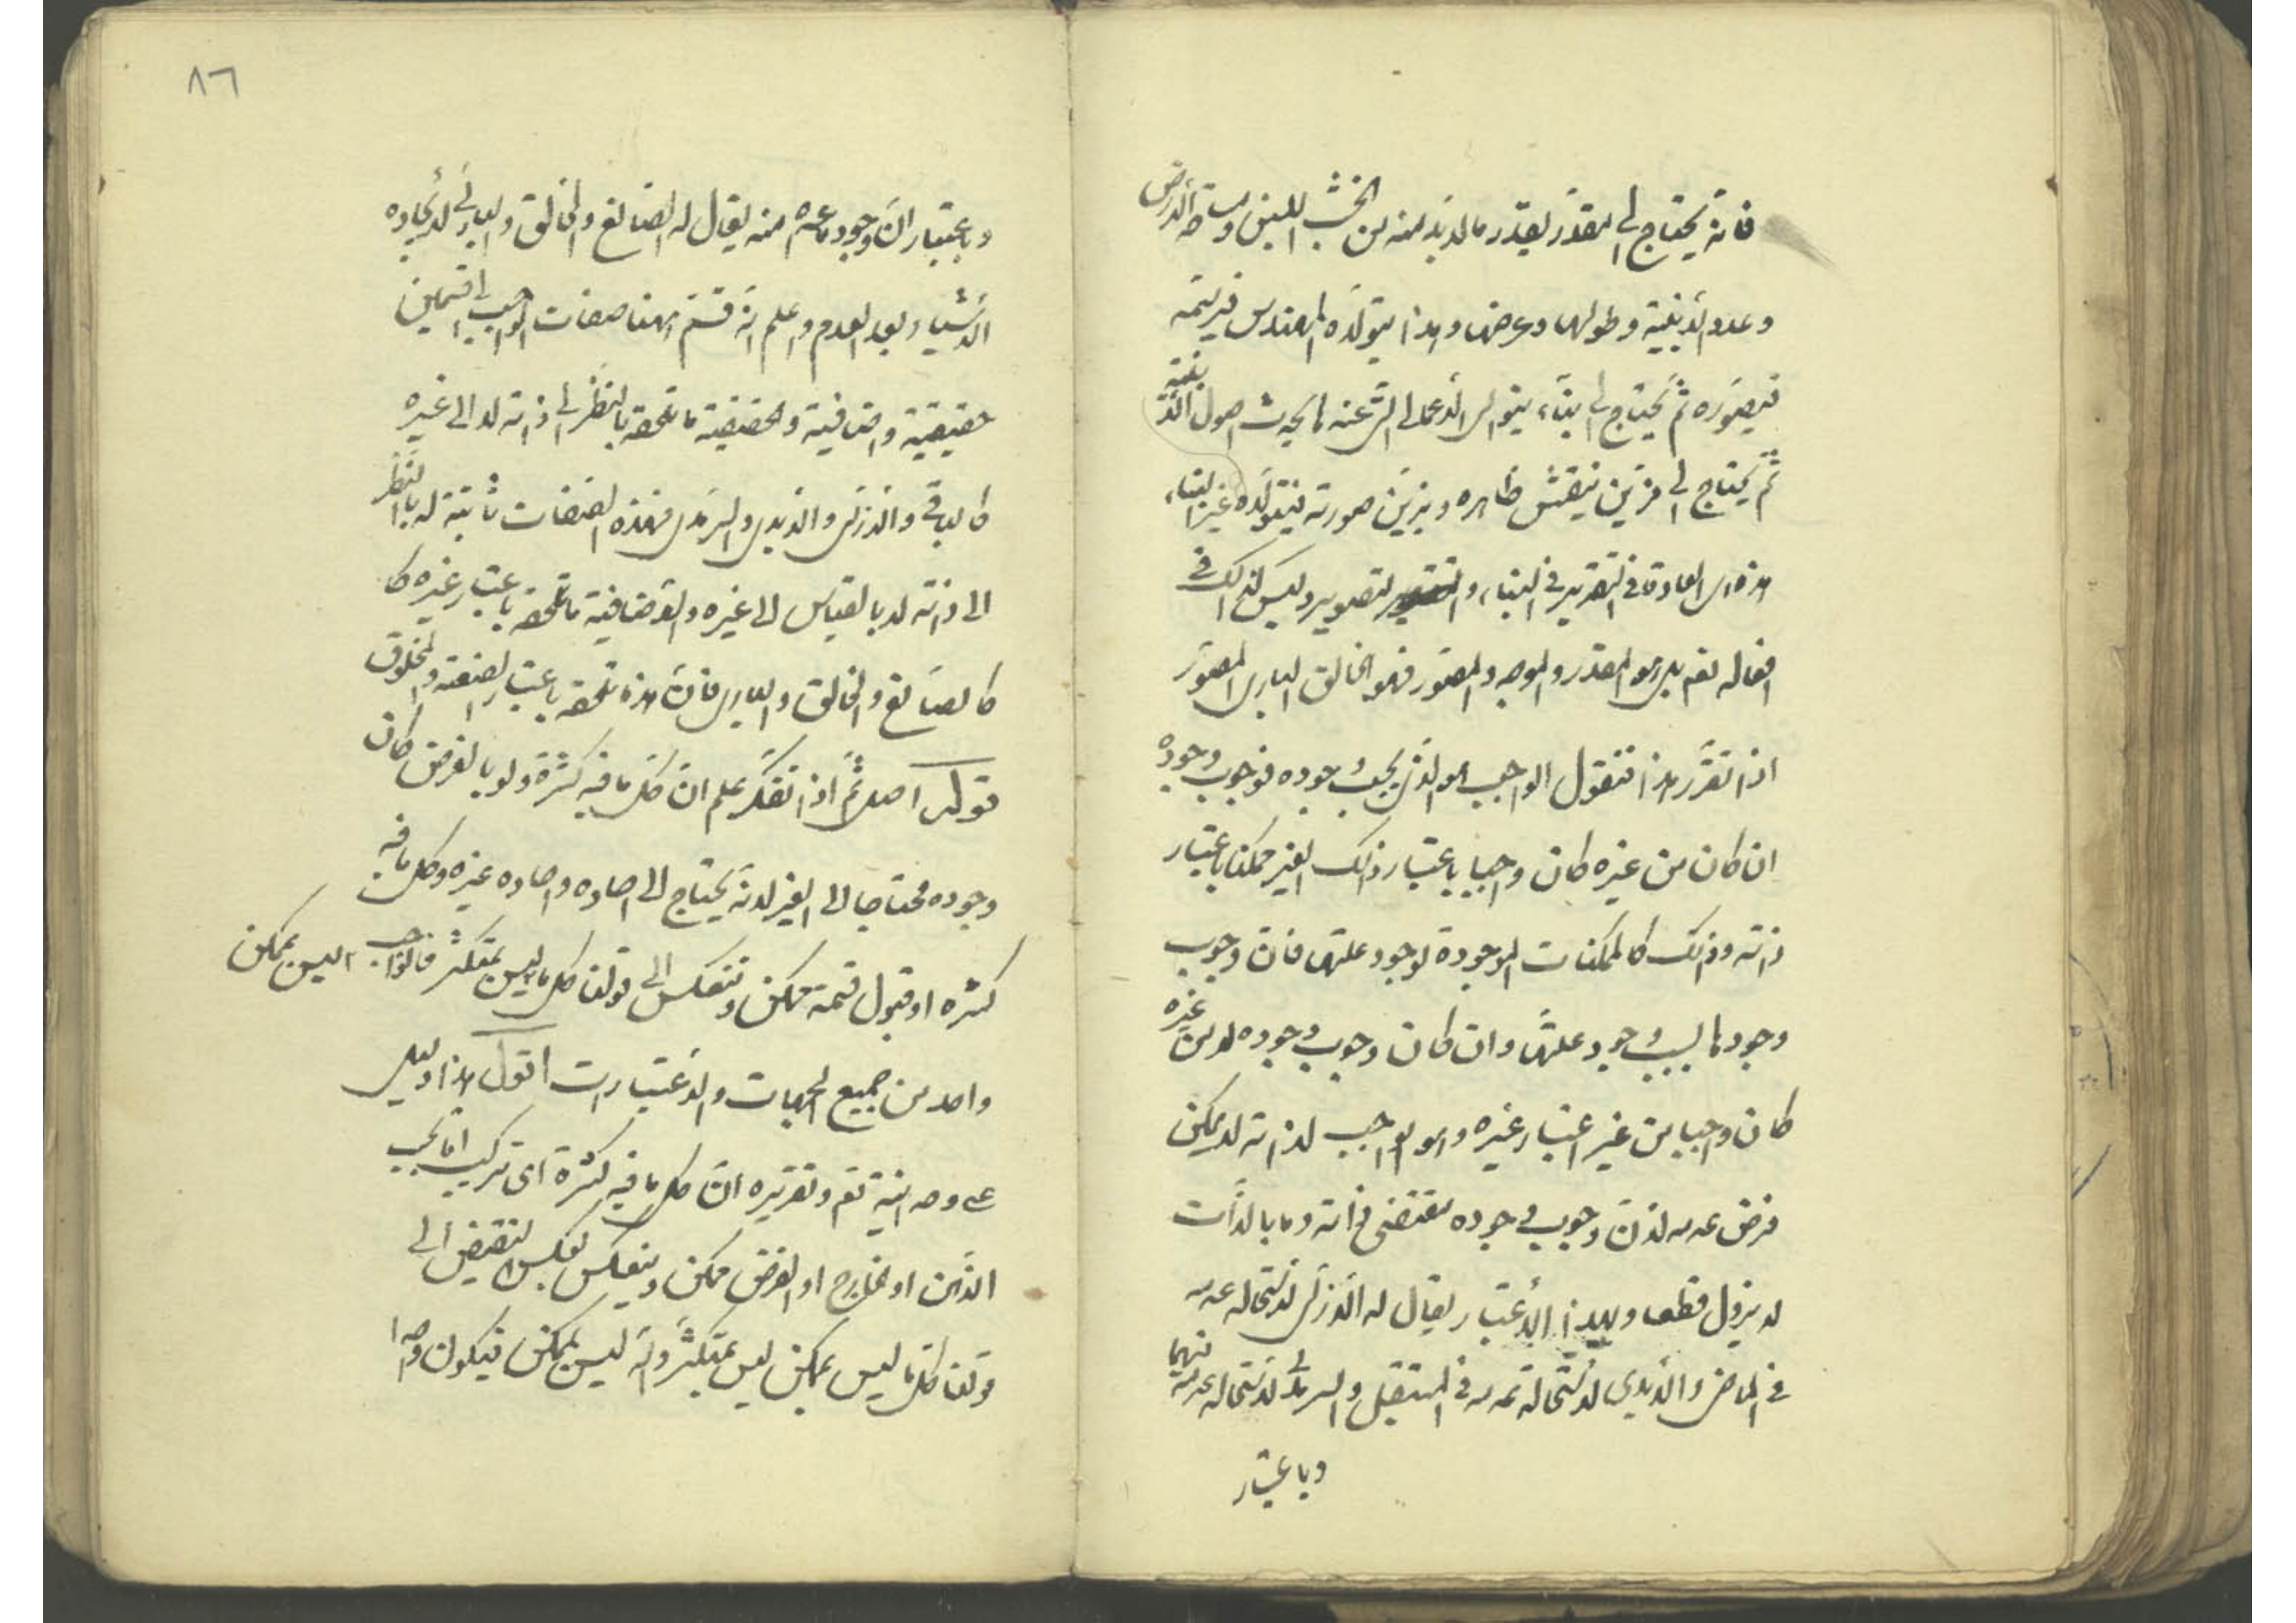 فانه يحتاج الى مقدر يقدر ما لا بد منه من الخشب واللبن ومساحة الارض
وعدد الابنية وطولها وعرضها وهذا يتولاه المهندس فيرسمه
فيصوره ثم يحتاج الى بناء يتولى الاعمال التى عندها يحدث اصول الابنية
ثم يحتاج الى مزين ينقش ظاهره ويزين صورته فيتولاه غير البناء
هذه هى العادة فى التقدير فى البناء والتصوير وليس كذلك فى
افعاله تعم بل هو المقدر والموجد والمصور فهو الخالق البارى المصور
اذا تقرر هذا فنقول الواجب هو الذى يجب وجوده فوجوب وجوده
ان كان من غيره كان واجبا باعتبار ذلك الغير ممكنا باعتبار
ذاته وذلك كالممكنات الموجودة لوجود علتها فان وجوب
وجودها بسبب وجود علتها وان كان وجوب وجوده لا من غيره
كان واجبا من غير اعتبار غيره وهو الواجب لذاته لا يمكن
فرض عدمه لان وجوب وجوده مقتضى ذاته وما بالذات
لا يزول قطعا وبهذا الاعتبار يقال له الازلى لاستحالة عدمه
فى الماضى والابدى لاستحالة عدمه فى المستقبل والسرمدى لاستحالة عدمه فيهما
وباعتبار
٨٦
وباعتبار ان وجود ما عداه منه يقال له الصانع والخالق والبارى لايجاده
الاشياء بعد العدم واعلم انه قسم ههنا صفات الواجب الى قسمين
حقيقية واضافية والحقيقية ما تلحقه بالنظر الى ذاته لا الى غيره
كالباقى والازلى والابدى والسرمدى فهذه الصفات ثابتة له بالنظر
الى ذاته لا بالقياس الى غيره والاضافية ما تلحقه باعتبار غيره كا
كالصانع والخالق والبارى فان هذه تلحقه باعتبار الصنعة والمخلوق
قوله اصل ثم اذا تفكر علم ان كل ما فيه كثرة ولو بالفرض كان
وجوده محتاجا الى الغير لانه يحتاج الى احاده واحاده غيره وكل ما فيه
كثره او قبول قسمة ممكن وتنعكس الى قولنا كل ما ليس بمتكثر فالواجب ليس بممكن
واحد من جميع الجهات والاعتبارات اقول هذا دليل
على وحدانيته تعم وتقريره ان كل ما فيه كثرة اى تركيب اما بحسب
الذهن او الخارج او الفرض ممكن وينعكس بعكس النقيض الى
قولنا كل ما ليس بممكن ليس بمتكثر وانه ليس بممكن فيكون واحدا